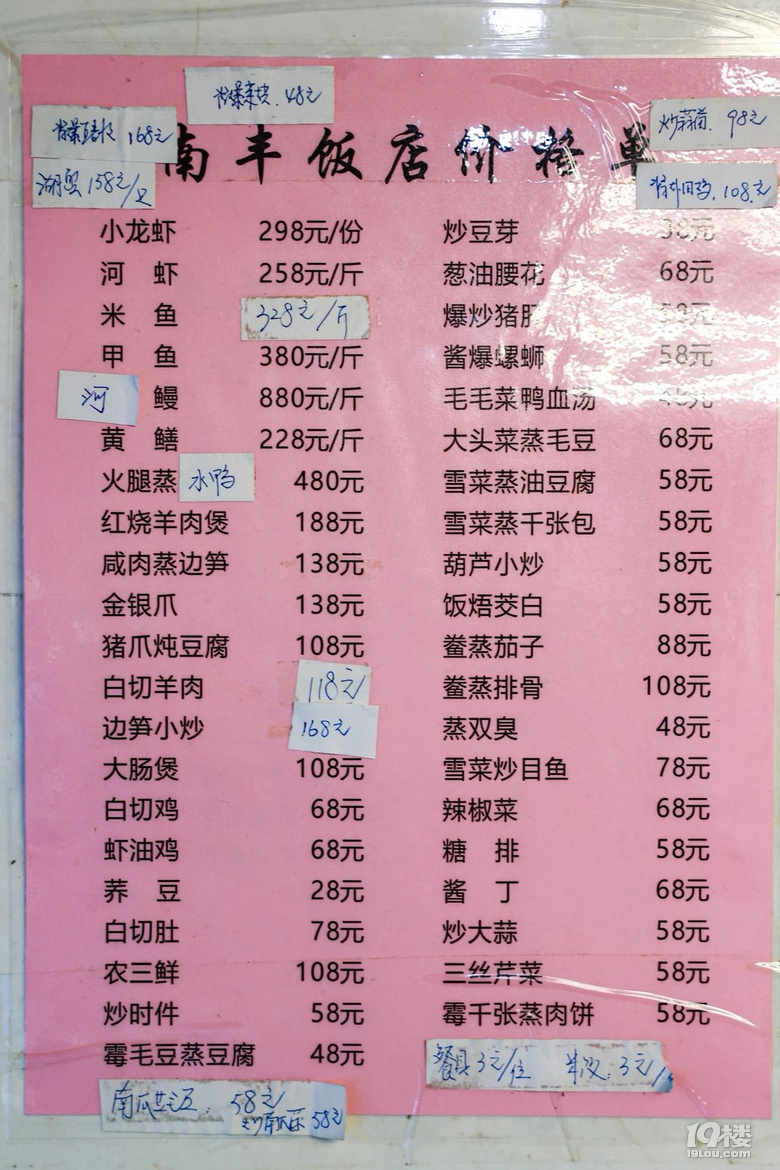 48元
168元
炒 98元
南丰饭店价格单
158元/只
108元
小龙虾 298元/份
河虾 258元/斤
米鱼 328元/斤
甲鱼 380元/斤
河鳗 880元/斤
黄鳝 228元/斤
火腿蒸水鸭 480元
红烧羊肉煲 188元
咸肉蒸边笋 138元
金银爪 138元
猪爪炖豆腐 108元
白切羊肉 118元/
边笋小炒 168元
大肠煲 108元
白切鸡 68元
虾油鸡 68元
荞豆 28元
白切肚 78元
农三鲜 108元
炒时件 58元
霉毛豆蒸豆腐 48元
南瓜 58元
58元
炒豆芽 38元
葱油腰花 68元
爆炒猪肝
酱爆螺蛳 58元
毛毛菜鸭血汤
大头菜蒸毛豆 68元
雪菜蒸油豆腐 58元
雪菜蒸千张包 58元
葫芦小炒 58元
饭焐茭白 58元
鲞蒸茄子 88元
鲞蒸排骨 108元
蒸双臭 48元
雪菜炒目鱼 78元
辣椒菜 68元
糖排 58元
酱丁 68元
炒大蒜 58元
三丝芹菜 58元
霉千张蒸肉饼 58元
餐具3元/位 米饭:3元/
19楼
19lou.com